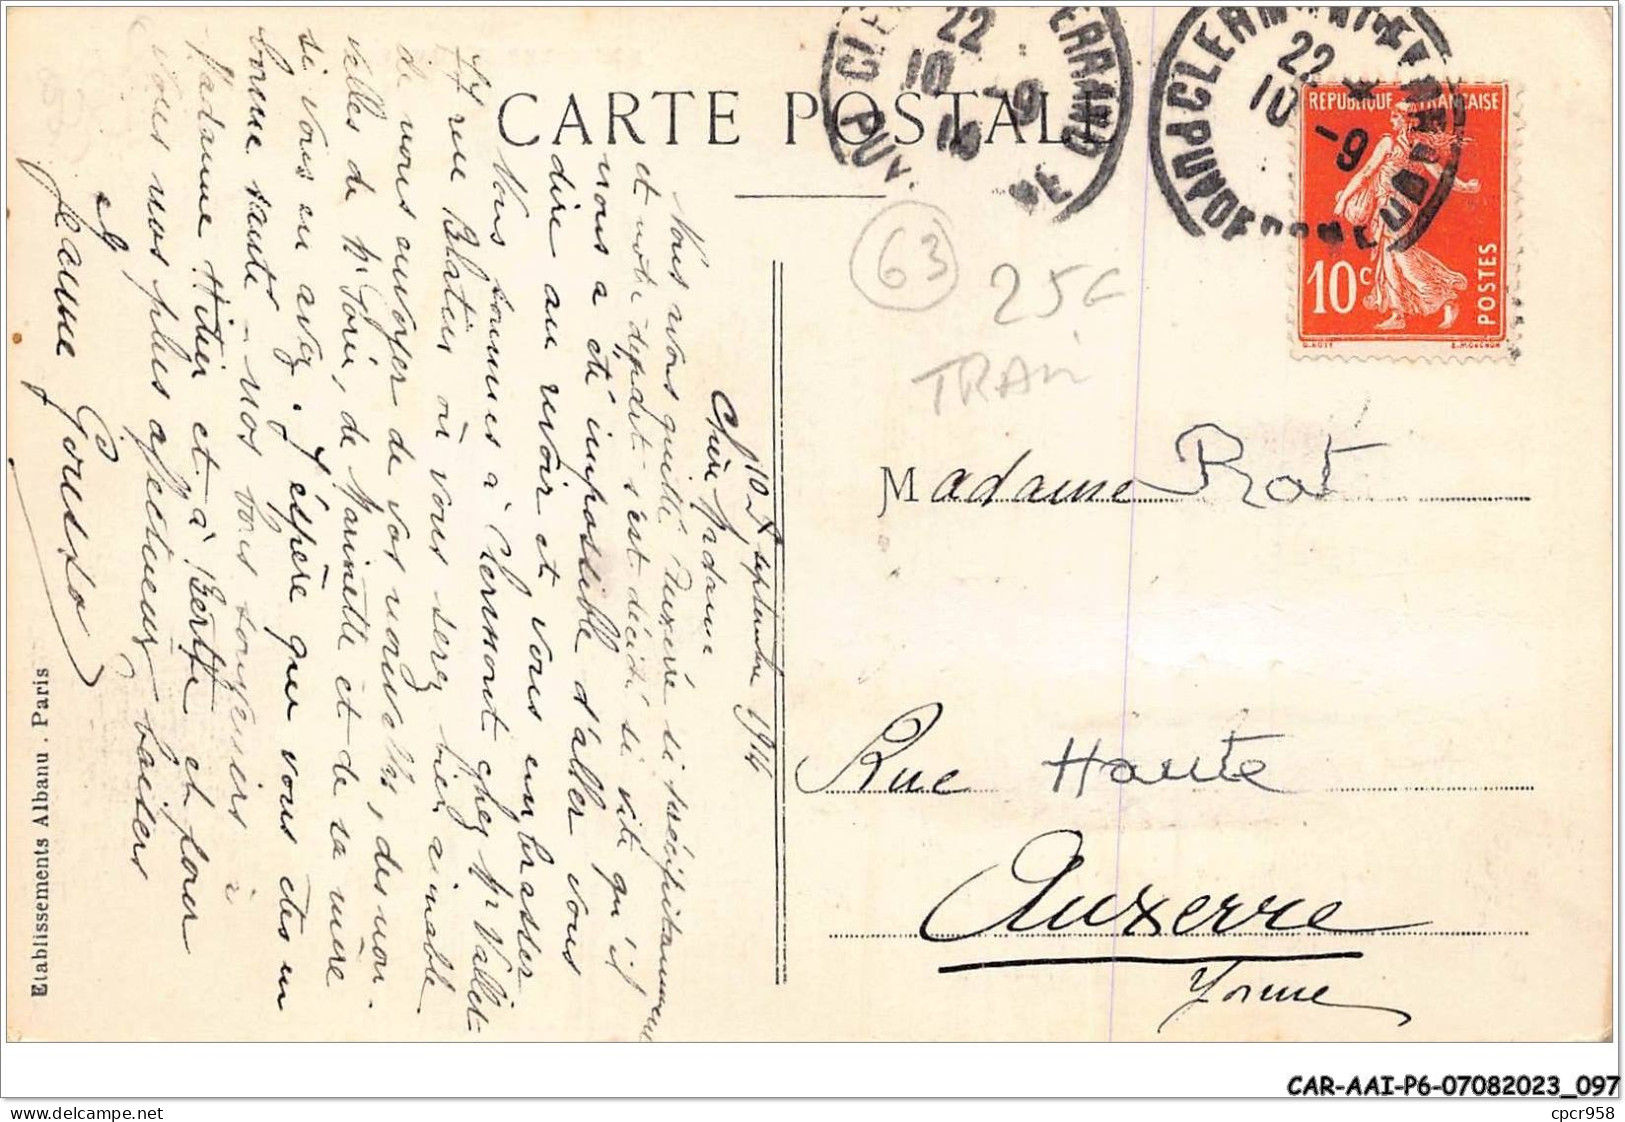 CARTE POSTALE
CLERMONT-FERRAND
PUY DE DOME
22
10 -9
14
CLERMONT-FERRAND
PUY-DE-DOME
22 *
10 -9
REPUBLIQUE FRANÇAISE
10 c
POSTES
63
25 c
TRAIN
Madame Rat
Rue Haute
Auxerre
Yonne
10 septembre 1914
Chère Madame
Nous avons quitté Auxerre si précipitamment
et notre départ s'est décidé si vite qu'il
nous a été impossible d'aller vous
dire au revoir et vous embrasser
Nous sommes à Clermont chez Mr Vallet
47 rue Blatin où vous serez bien aimable
de nous envoyer de vos nouvelles, des nou-
velles de Mr , de Marinette et de sa mère
si vous en avez. J'espère que vous êtes en
bonne santé - nos bons souvenirs à
Madame et à Berthe et pour
vous nos plus affectueux baisers
Jeanne
Etablissements Albanu . Paris
CAR-AAI-P6-07082023_097
www.delcampe.net
cpcr958